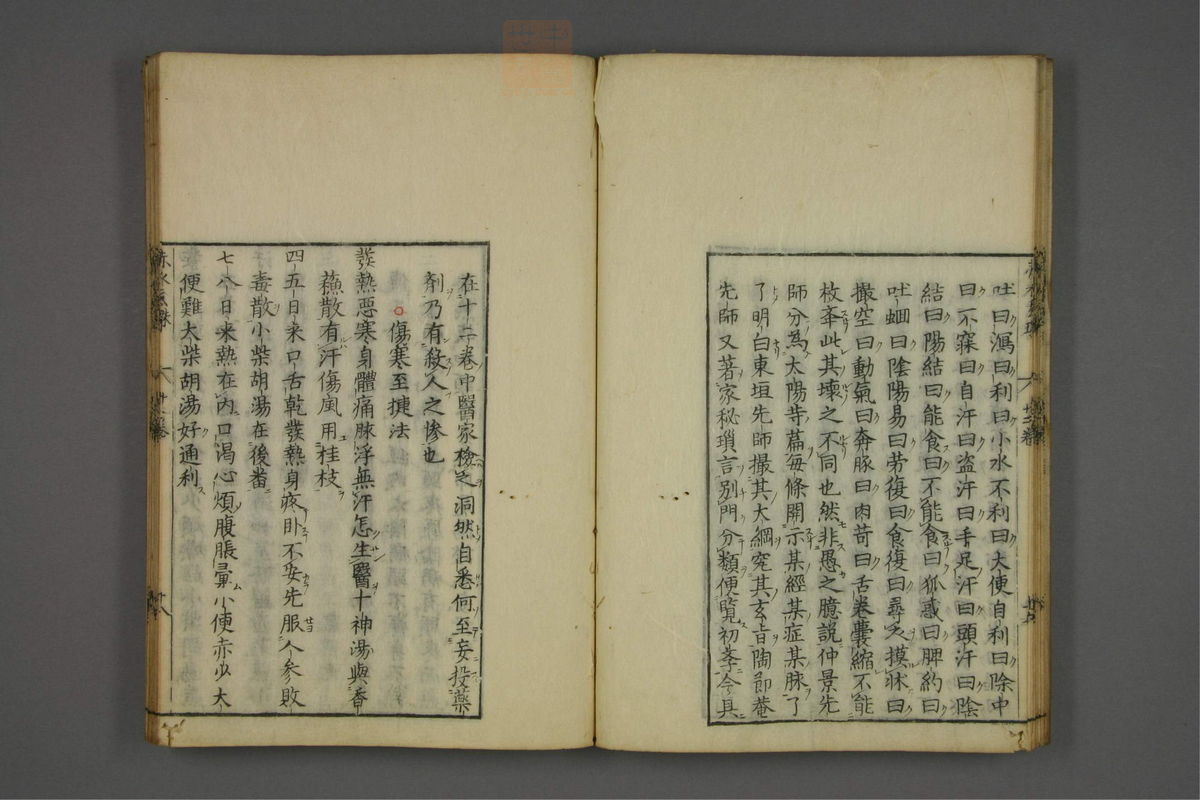 吐曰瀉曰利曰小水不利曰大使自利曰除中
曰不寐曰自汗曰盗汗曰手足汗曰頭汗曰陰
結曰陽結曰能食曰不能食曰狐惑曰脾約曰
吐蛔曰陰陽易曰労復曰食復曰尋衣摸牀曰
撮空曰動氣曰奔豚曰肉苛曰舌巻囊縮不能
枚挙此其壊之不同也然非愚之臆說仲景先
師分為太陽等篇每條開示某經某症某脉了
了明白東垣先師撮其大綱究其玄旨陶節菴
先師又著家秘瑣言別門分類便覧初莩今具
在十二卷中醫家檢之洞然自悉何至妄投藥
劑乃有殺人之惨也
傷寒至捷法
發熱惡寒身體痛脉浮無汗怎生醫十神湯與香
蘓散有汗傷風用桂枝
四五日来口舌乾發熱身疼卧不安先服人參敗
毒散小柴胡湯在後畨
七八日来熱在内口渴心煩腹脹彙小便赤少大
便難大柴胡湯好通利
赤水玄珠